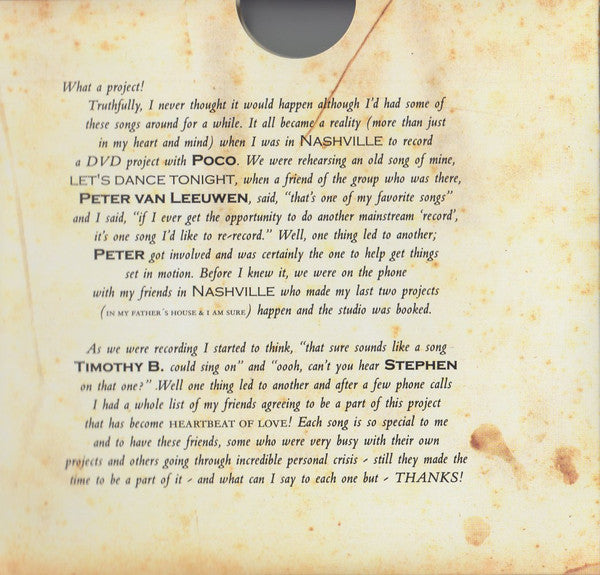 What a project!
Truthfully, I never thought it would happen although I'd had some of
these songs around for a while. It all became a reality (more than just
in my heart and mind) when I was in NASHVILLE to record
a DVD project with POCO. We were rehearsing an old song of mine,
LET'S DANCE TONIGHT, when a friend of the group who was there,
PETER VAN LEEUWEN, said, "that's one of my favorite songs"
and I said, "if I ever get the opportunity to do another mainstream 'record',
it's one song I'd like to re-record." Well, one thing led to another;
PETER got involved and was certainly the one to help get things
set in motion. Before I knew it, we were on the phone
with my friends in NASHVILLE who made my last two projects
(IN MY FATHER'S HOUSE & I AM SURE) happen and the studio was booked.
As we were recording I started to think, "that sure sounds like a song
TIMOTHY B. could sing on" and "oooh, can't you hear STEPHEN
on that one?" Well one thing led to another and after a few phone calls
I had a whole list of my friends agreeing to be a part of this project
that has become HEARTBEAT OF LOVE! Each song is so special to me
and to have these friends, some who were very busy with their own
projects and others going through incredible personal crisis - still they made the
time to be a part of it - and what can I say to each one but - THANKS!